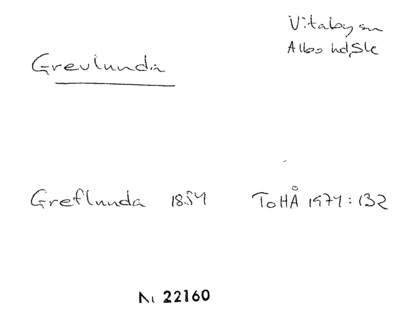 Vitaby sn
Albo hd, Sk
Grevlunda
Greflunda 1854 ToHÅ 1974:132
N: 22160